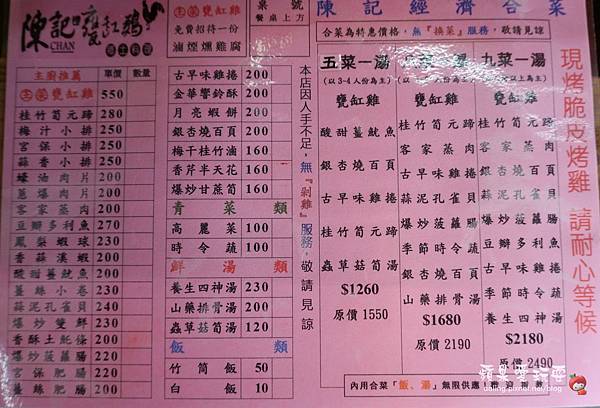 陳記甕缸鷄
CHAN
主廚推薦 單價 數量
甕缸雞 550
桂竹筍元蹄 280
梅汁小排 200
宮保小排 200
蒜香小排 200
蠔油肉片 200
蔥爆肉片 200
客家蒸肉 200
豆瓣多利魚 270
鳳梨蝦球 230
香蒜溪蝦 220
酸甜薑魷魚 220
薑絲小卷 230
蒜泥孔雀貝 240
爆炒雙鮮 230
香酥土魠條 220
爆炒菠蘿腸 220
宮保肥腸 220
薑絲肥腸 200
甕缸雞
免費招待一份
滷煙燻雞腐
桌號
餐桌上方
古早味雞捲 200
金華響鈴酥 200
月亮蝦餅 200
銀杏燒百頁 200
梅干桂竹滷 160
香芹半天花 160
爆炒甘蔗筍 160
青菜類
高麗菜 100
時令蔬 100
鮮湯類
養生四神湯 230
山藥排骨湯 200
蟲草菇筍湯 200
飯類
竹筒飯 50
白飯 10
本店因人手不足,無『剁雞』服務,敬請見諒
陳記經濟合菜
合菜為特惠價格,無『換菜』服務,敬請見諒
五菜一湯
(以3-4人份為主)
甕缸雞
酸甜薑魷魚
銀杏燒百頁
古早味雞捲
時令蔬
蟲草菇筍湯
$1260
原價1550
甕缸雞
桂竹筍元蹄
客家蒸肉
蒜泥孔雀貝
爆炒菠蘿腸
季節時令蔬
銀杏燒百頁
山藥排骨湯
$1680
原價2190
九菜一湯
甕缸雞
桂竹筍元蹄
客家蒸肉
銀杏燒百頁
蒜泥孔雀貝
爆炒菠蘿腸
豆瓣多利魚
古早味雞捲
季節時令蔬
養生四神湯
$2180
原價2490
內用合菜「飯、湯」無限供應!
現烤脆皮烤雞 請耐心等候